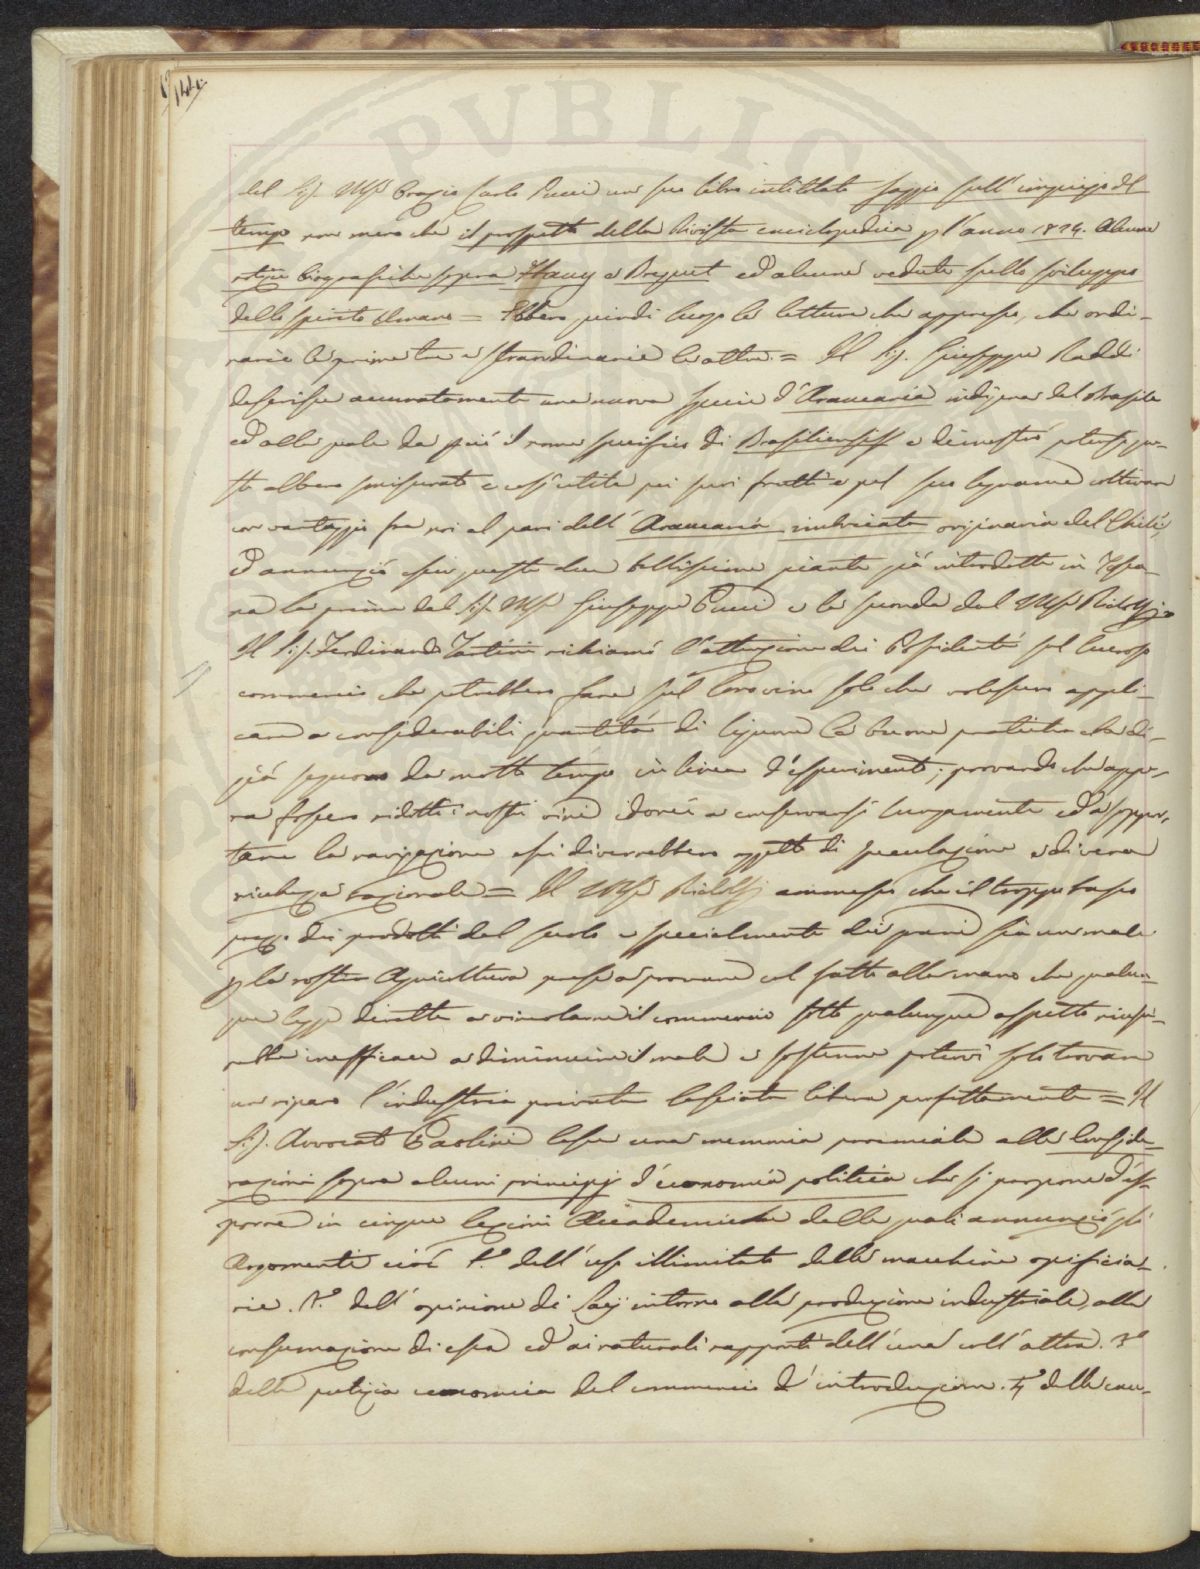 144
PVBLIC
del Sig. Mse Orazio Carlo Pucci un suo libro intitolato Saggio sull'impiego del
tempo non meno che il prospetto della Rivista enciclopedica pl'anno 1824. Alcune
notizie biografiche sopra Hauy e Breguet ed alcune vedute sullo sviluppo
dello Spirito Umano = Ebbero quindi luogo le letture che appresso, che ordi-
narie le prime tre e straordinarie le altre. = Il Sig. Giuseppe Raddi
descrisse accuratamente una nuova specie d'Araucaria indigena del Brasile
ed alla quale da più il nome specifico di Brasiliensis e dimostrò potersi que-
st'albero smisurato e così utile pei suoi frutti e pel suo legname coltivare
con vantaggio fra noi al pari dell'Araucaria imbricata originaria del Chilì,
ed annunziò esser queste due bellissime piante già introdotte in Tosca-
na la prima dal Sig. Mse Giuseppe Pucci e la seconda dal Mse Ridolfj =
Il Sig. Ferdinando Tartini richiamò l'attenzione dei Possidenti sul lucroso
commercio che potrebbero fare sul loro vino solo che volessero appli-
care a considerabili quantità di liquore le buone pratiche che di-
già seguono da molto tempo in linea d'esperimenti; provando che appe-
na fossero ridotti i nostri vini idonei a conservarsi lungamente ed a soppor-
tare la navigazione essi diverrebbero oggetto di speculazione e di vera
ricchezza nazionale = Il Mse Ridolfj ammesso che il troppo basso
prezzo dei prodotti del suolo e specialmente dei grani sia un male
p la nostra Agricoltura prese a provare col fatto alla mano che qualun-
que legge diretta a vincolarne il commercio sotto qualunque aspetto riusci-
rebbe inefficace a diminuire il male e sostenne potervi solo trovare
un riparo l'industria privata lasciata libera perfettamente = Il
Sig. Avvocato Paolini lesse una memoria proemiale alle Conside-
razioni sopra alcuni principj d'economia politica che si propone d'es-
porre in cinque lezioni Accademiche delle quali annunziò gli
Argomenti cioè 1.° dell'uso illimitato delle macchine opificia-
rie. 2.° dell'opinione di Say intorno alla produzione industriale, alla
consumazione di essa ed ai naturali rapporti dell'una coll'altra. 3.°
della polizia economica del commercio d'introduzione. 4.° delle cau-